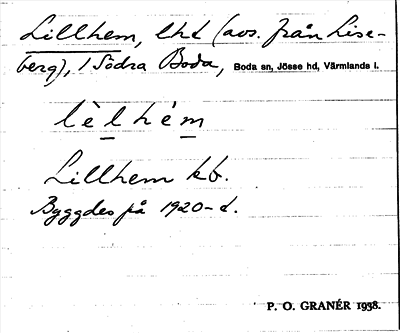 Lillhem, lht (avs. från Lise-
berg), i Södra Boda, Boda sn, Jösse hd, Värmlands l.
lèlhém
Lillhem kb.
Byggdes på 1920-t.
P. O. GRANÉR 1938.